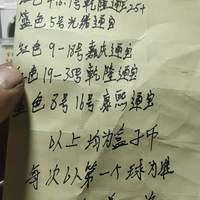 红色4.16.17号乾隆通25+
蓝色5号光绪通宝
红色9-18号嘉庆通宝
色19-35号乾隆通宝
蓝色8号16号康熙通宝
以上均为盒子币
每次以第一个球为准